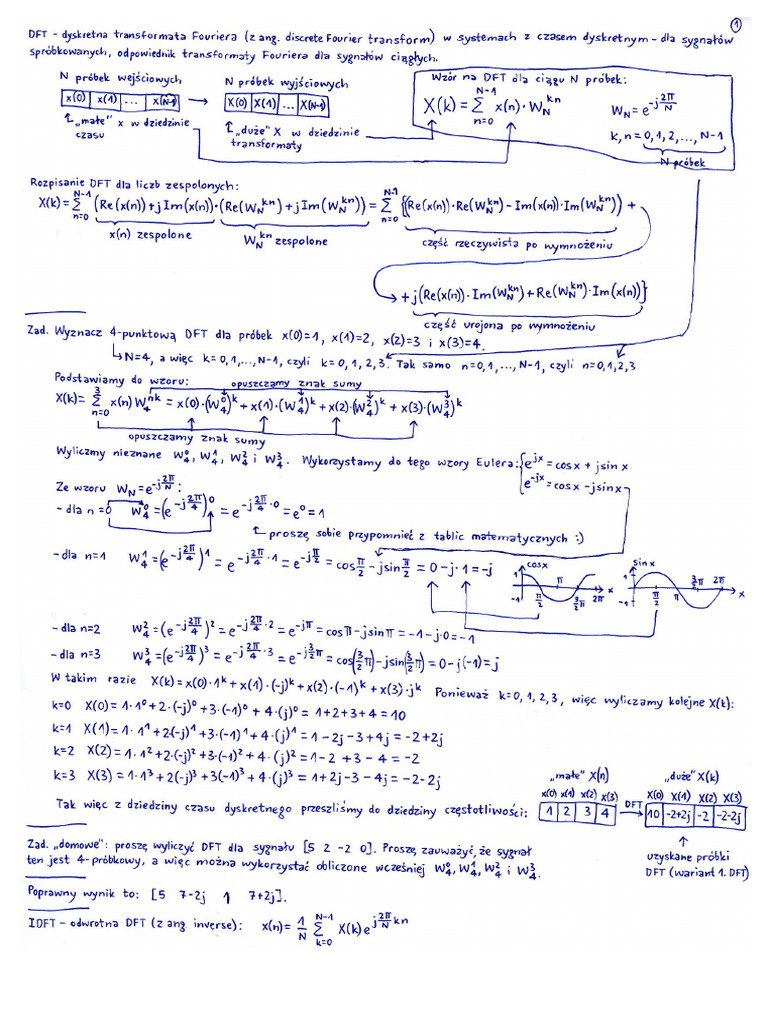 ①
DFT - dyskretna transformata Fouriera (z ang. discrete Fourier transform) w systemach z czasem dyskretnym - dla sygnałów
spróbkowanych, odpowiednik transformaty Fouriera dla sygnałów ciągłych.
N próbek wejściowych
x(0) x(1) ... x(N-1)
"małe" x w dziedzinie
czasu
N próbek wyjściowych
X(0) X(1) ... X(N-1)
"duże" X w dziedzinie
transformaty
Wzór na DFT dla ciągu N próbek:
X(k) = Σ_{n=0}^{N-1} x(n)·W_N^{kn}
W_N = e^{-j2π/N}
k, n = 0, 1, 2, ..., N-1
N próbek
Rozpisanie DFT dla liczb zespolonych:
X(k) = Σ_{n=0}^{N-1} (Re(x(n)) + j Im(x(n)))·(Re(W_N^{kn}) + j Im(W_N^{kn})) = Σ_{n=0}^{N-1} {(Re(x(n))·Re(W_N^{kn}) - Im(x(n))·Im(W_N^{kn})) +
x(n) zespolone
W_N^{kn} zespolone
część rzeczywista po wymnożeniu
+ j(Re(x(n))·Im(W_N^{kn}) + Re(W_N^{kn})·Im(x(n)))}
część urojona po wymnożeniu
Zad. Wyznacz 4-punktową DFT dla próbek x(0)=1, x(1)=2, x(2)=3 i x(3)=4.
N=4, a więc k=0, 1, ..., N-1, czyli k=0, 1, 2, 3. Tak samo n=0, 1, ..., N-1, czyli n=0, 1, 2, 3
Podstawiamy do wzoru:
opuszczamy znak sumy
X(k) = Σ_{n=0}^{3} x(n) W_4^{nk} = x(0)·(W_4^0)^k + x(1)·(W_4^1)^k + x(2)·(W_4^2)^k + x(3)·(W_4^3)^k
opuszczamy znak sumy
Wyliczmy nieznane W_4^0, W_4^1, W_4^2 i W_4^3. Wykorzystamy do tego wzory Eulera:
e^{jx} = cosx + jsinx
e^{-jx} = cosx - jsinx
Ze wzoru W_N = e^{-j2π/N}:
- dla n=0 W_4^0 = (e^{-j2π/4})^0 = e^{-j2π/4·0} = e^0 = 1
proszę sobie przypomnieć z tablic matematycznych :)
- dla n=1 W_4^1 = (e^{-j2π/4})^1 = e^{-j2π/4·1} = e^{-jπ/2} = cos π/2 - jsin π/2 = 0 - j·1 = -j
cosx
1
-1
π/2
π
3/2π
2π
x
sinx
1
-1
π/2
π
3/2π
2π
x
- dla n=2 W_4^2 = (e^{-j2π/4})^2 = e^{-j2π/4·2} = e^{-jπ} = cosπ - jsinπ = -1 - j·0 = -1
- dla n=3 W_4^3 = (e^{-j2π/4})^3 = e^{-j2π/4·3} = e^{-j3/2π} = cos(3/2π) - jsin(3/2π) = 0 - j(-1) = j
W takim razie X(k) = x(0)·1^k + x(1)·(-j)^k + x(2)·(-1)^k + x(3)·j^k Ponieważ k=0, 1, 2, 3, więc wyliczamy kolejne X(k):
k=0 X(0) = 1·1^0 + 2·(-j)^0 + 3·(-1)^0 + 4·(j)^0 = 1+2+3+4 = 10
k=1 X(1) = 1·1^1 + 2(-j)^1 + 3·(-1)^1 + 4·(j)^1 = 1-2j-3+4j = -2+2j
k=2 X(2) = 1·1^2 + 2·(-j)^2 + 3·(-1)^2 + 4·(j)^2 = 1-2+3-4 = -2
k=3 X(3) = 1·1^3 + 2(-j)^3 + 3(-1)^3 + 4·(j)^3 = 1+2j-3-4j = -2-2j
Tak więc z dziedziny czasu dyskretnego przeszliśmy do dziedziny częstotliwości:
"małe" X(n)
x(0) x(1) x(2) x(3)
1 2 3 4
DFT
"duże" X(k)
X(0) X(1) X(2) X(3)
10 -2+2j -2 -2-2j
uzyskane próbki
DFT (wariant 1. DFT)
Zad. "domowe": proszę wyliczyć DFT dla sygnału [5 2 -2 0]. Proszę zauważyć, że sygnał
ten jest 4-próbkowy, a więc można wykorzystać obliczone wcześniej W_4^0, W_4^1, W_4^2 i W_4^3.
Poprawny wynik to: [5 7-2j 1 7+2j].
IDFT - odwrotna DFT (z ang. inverse): x(n) = 1/N Σ_{k=0}^{N-1} X(k) e^{j2π/N kn}